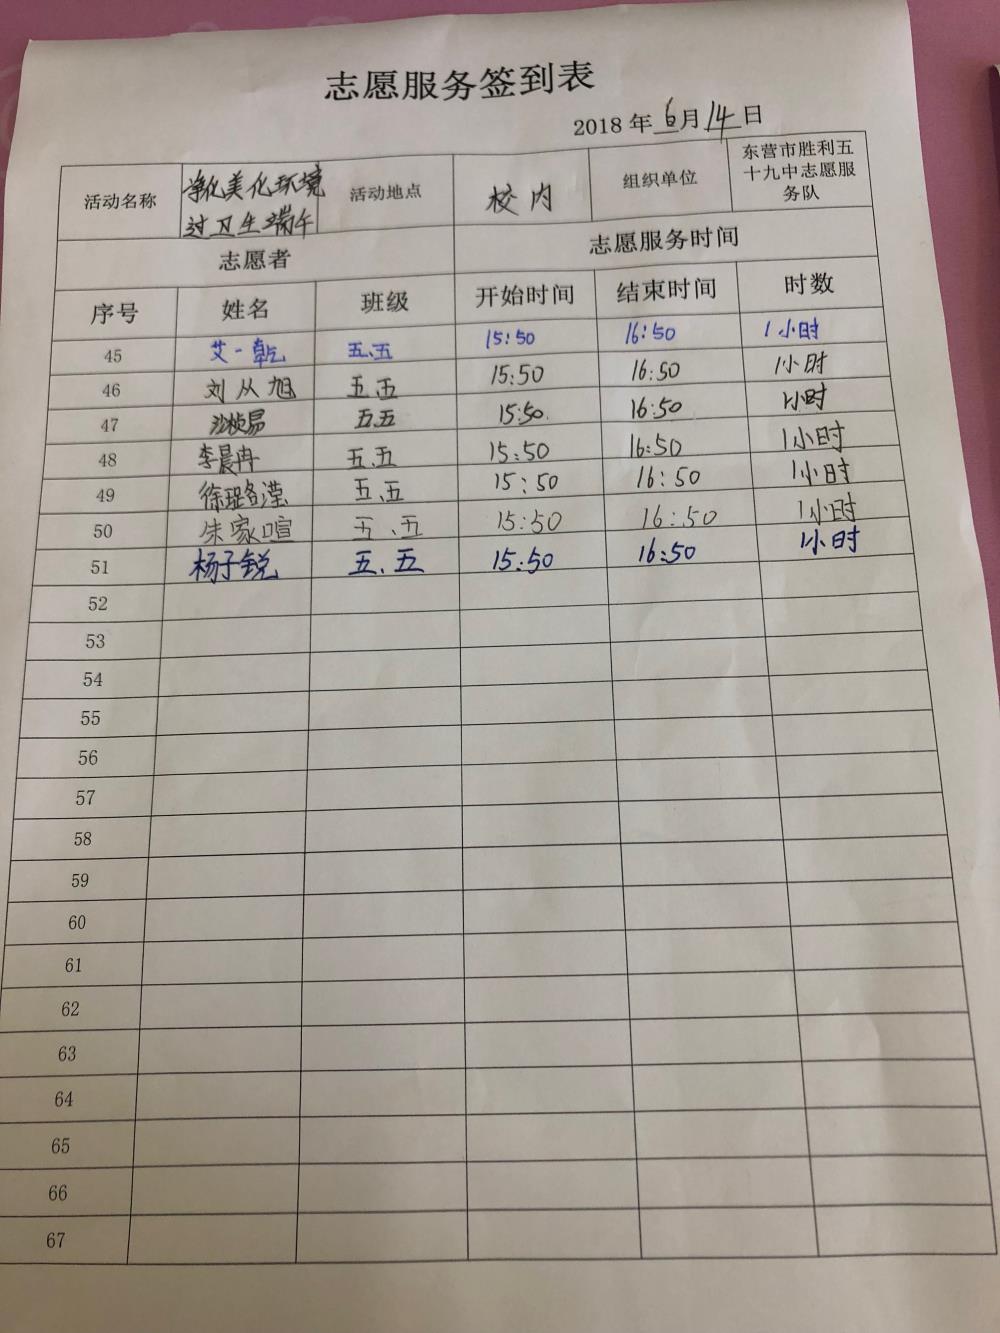 志愿服务签到表
2018 年 6 月 14 日
活动名称 净化美化环境 过卫生端午 活动地点 校内 组织单位 东营市胜利五十九中志愿服务队
志愿者 志愿服务时间
序号 姓名 班级 开始时间 结束时间 时数
45 艾一乾 五、五 15:50 16:50 1小时
46 刘从旭 五、五 15:50 16:50 1小时
47 五、五 15:50 16:50 1小时
48 李晨冉 五、五 15:50 16:50 1小时
49 五、五 15:50 16:50 1小时
50 朱家暄 五、五 15:50 16:50 1小时
51 杨子锐 五、五 15:50 16:50 1小时
52
53
54
55
56
57
58
59
60
61
62
63
64
65
66
67